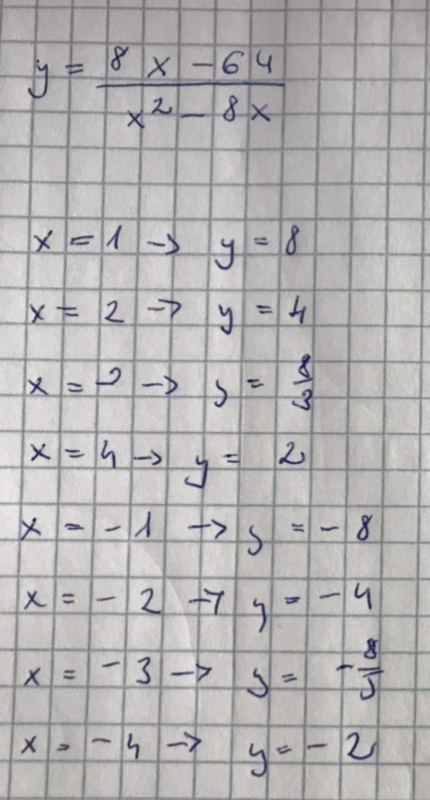 y = (8x - 64)/(x² - 8x)
x = 1 → y = 8
x = 2 → y = 4
x = 3 → y = 8/3
x = 4 → y = 2
x = -1 → y = -8
x = -2 → y = -4
x = -3 → y = -8/3
x = -4 → y = -2